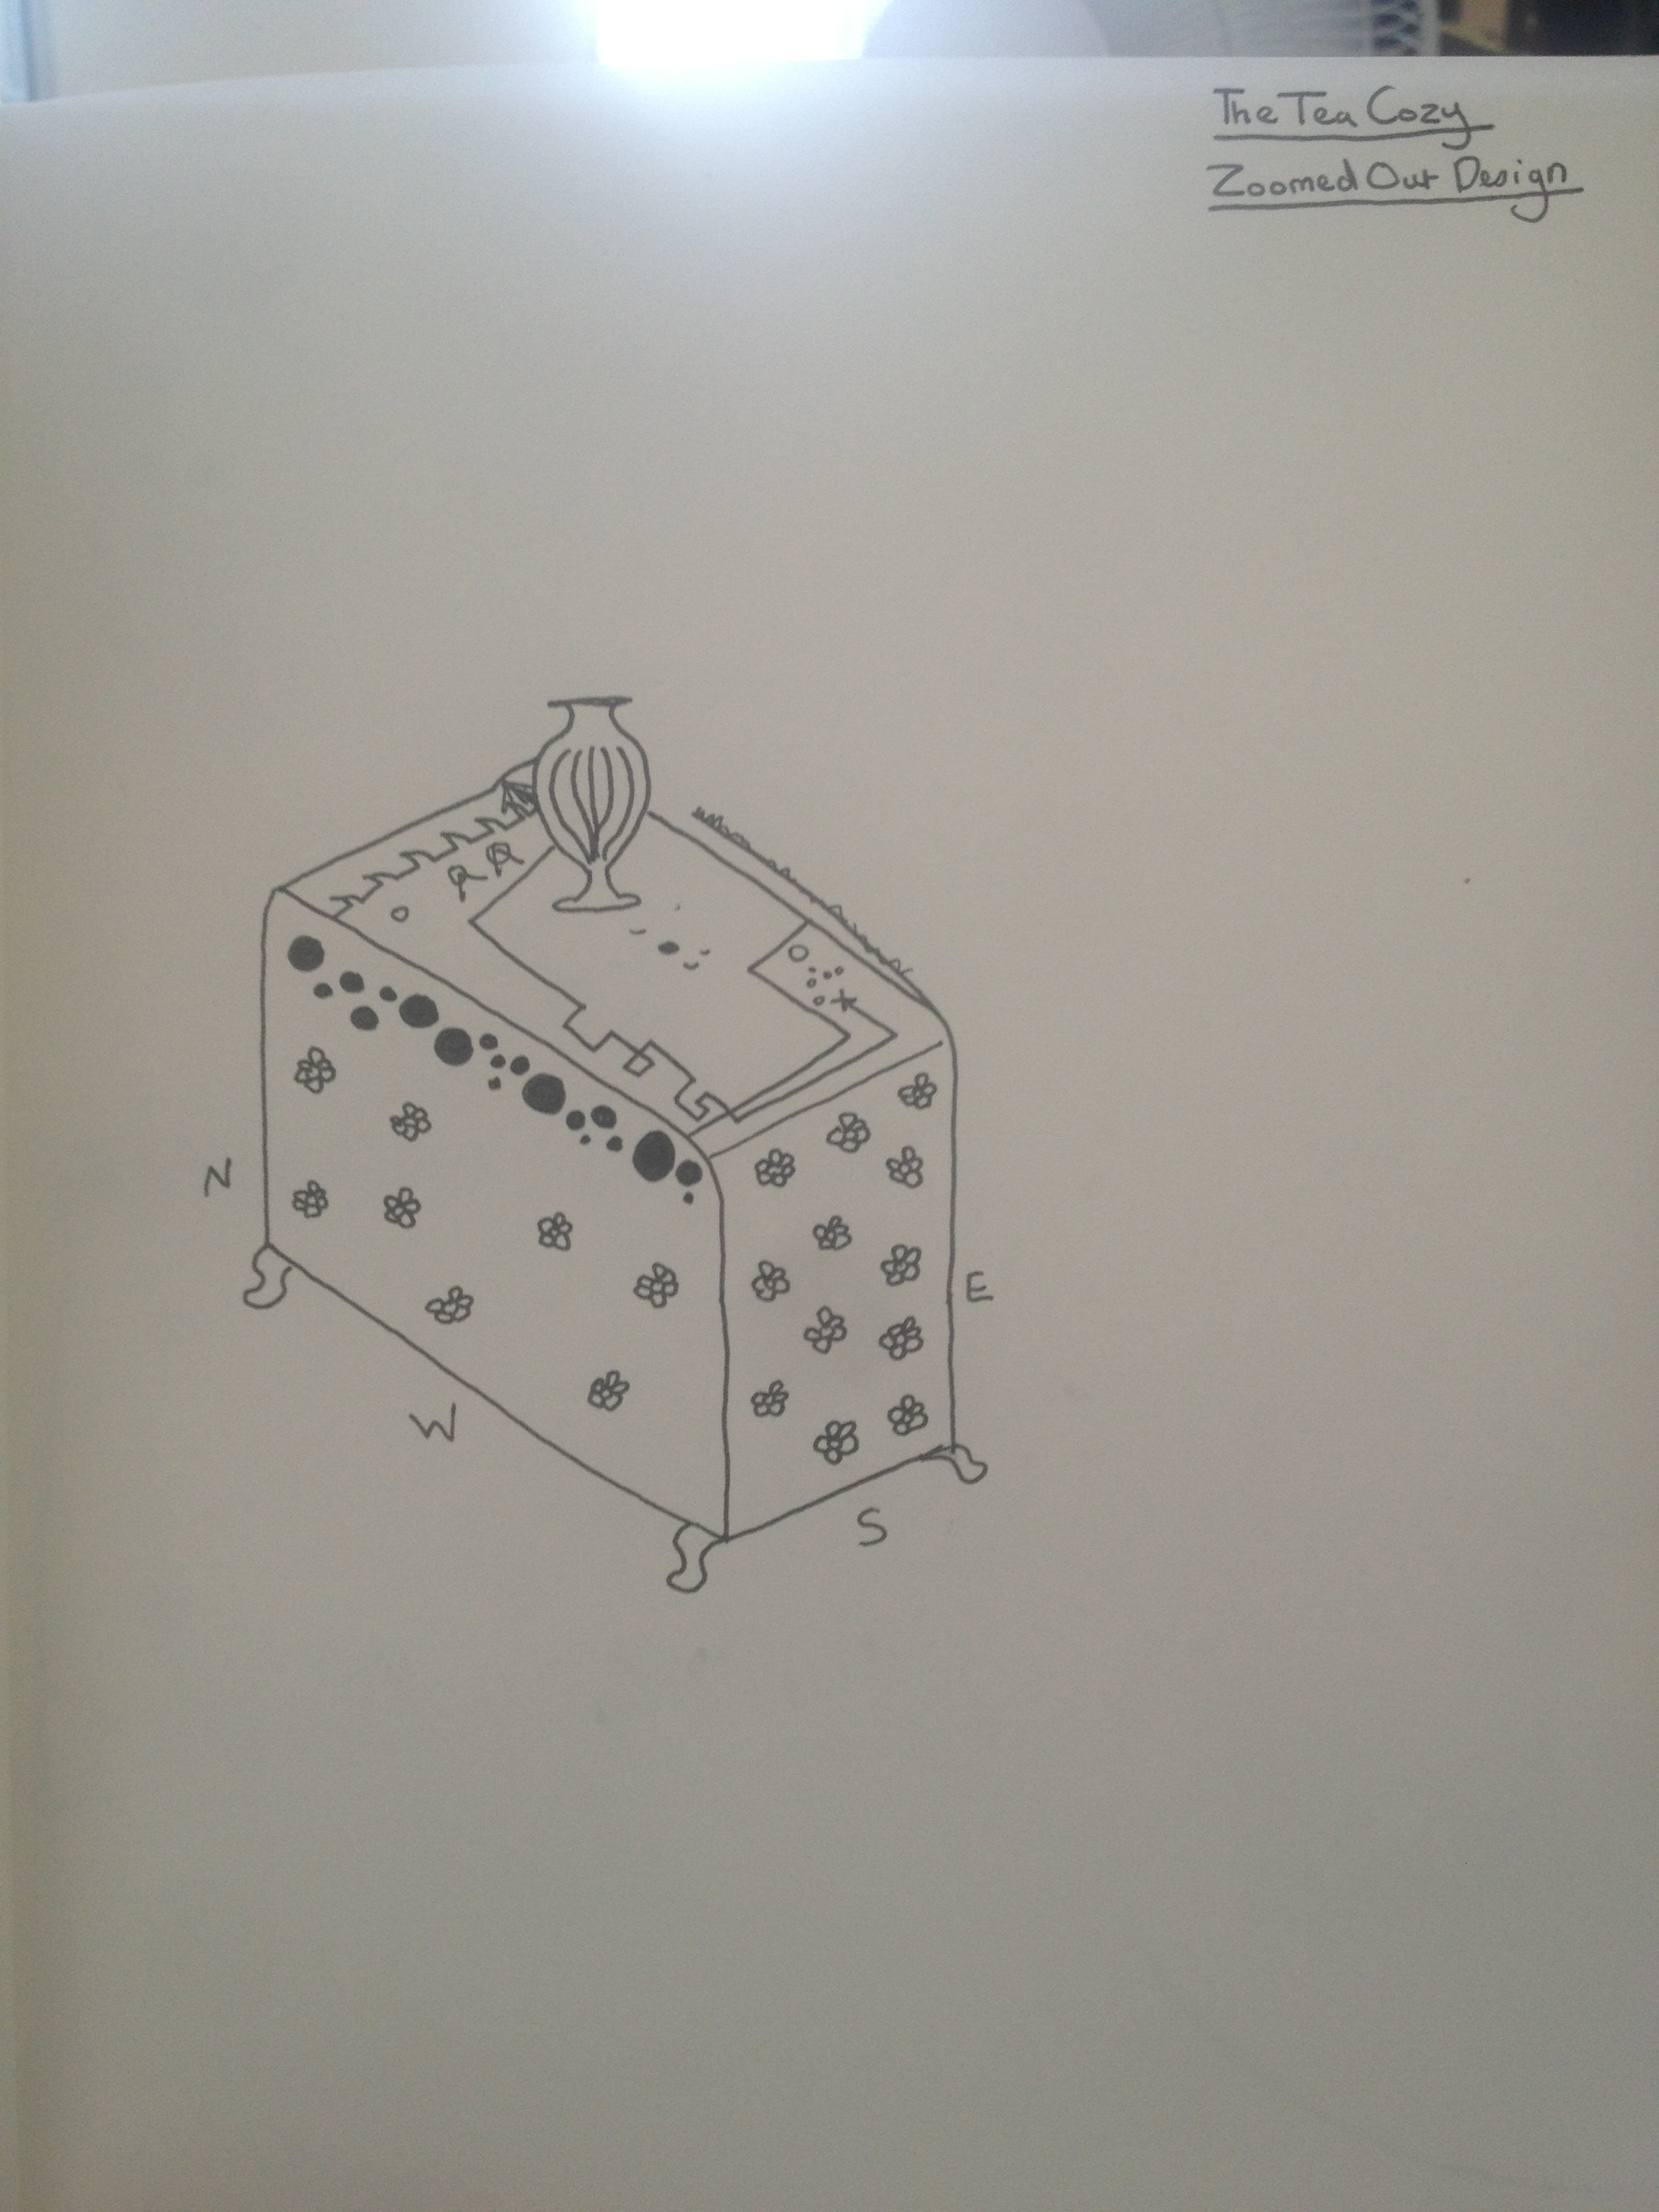 The Tea Cozy
Zoomed Out Design
N
E
W
S